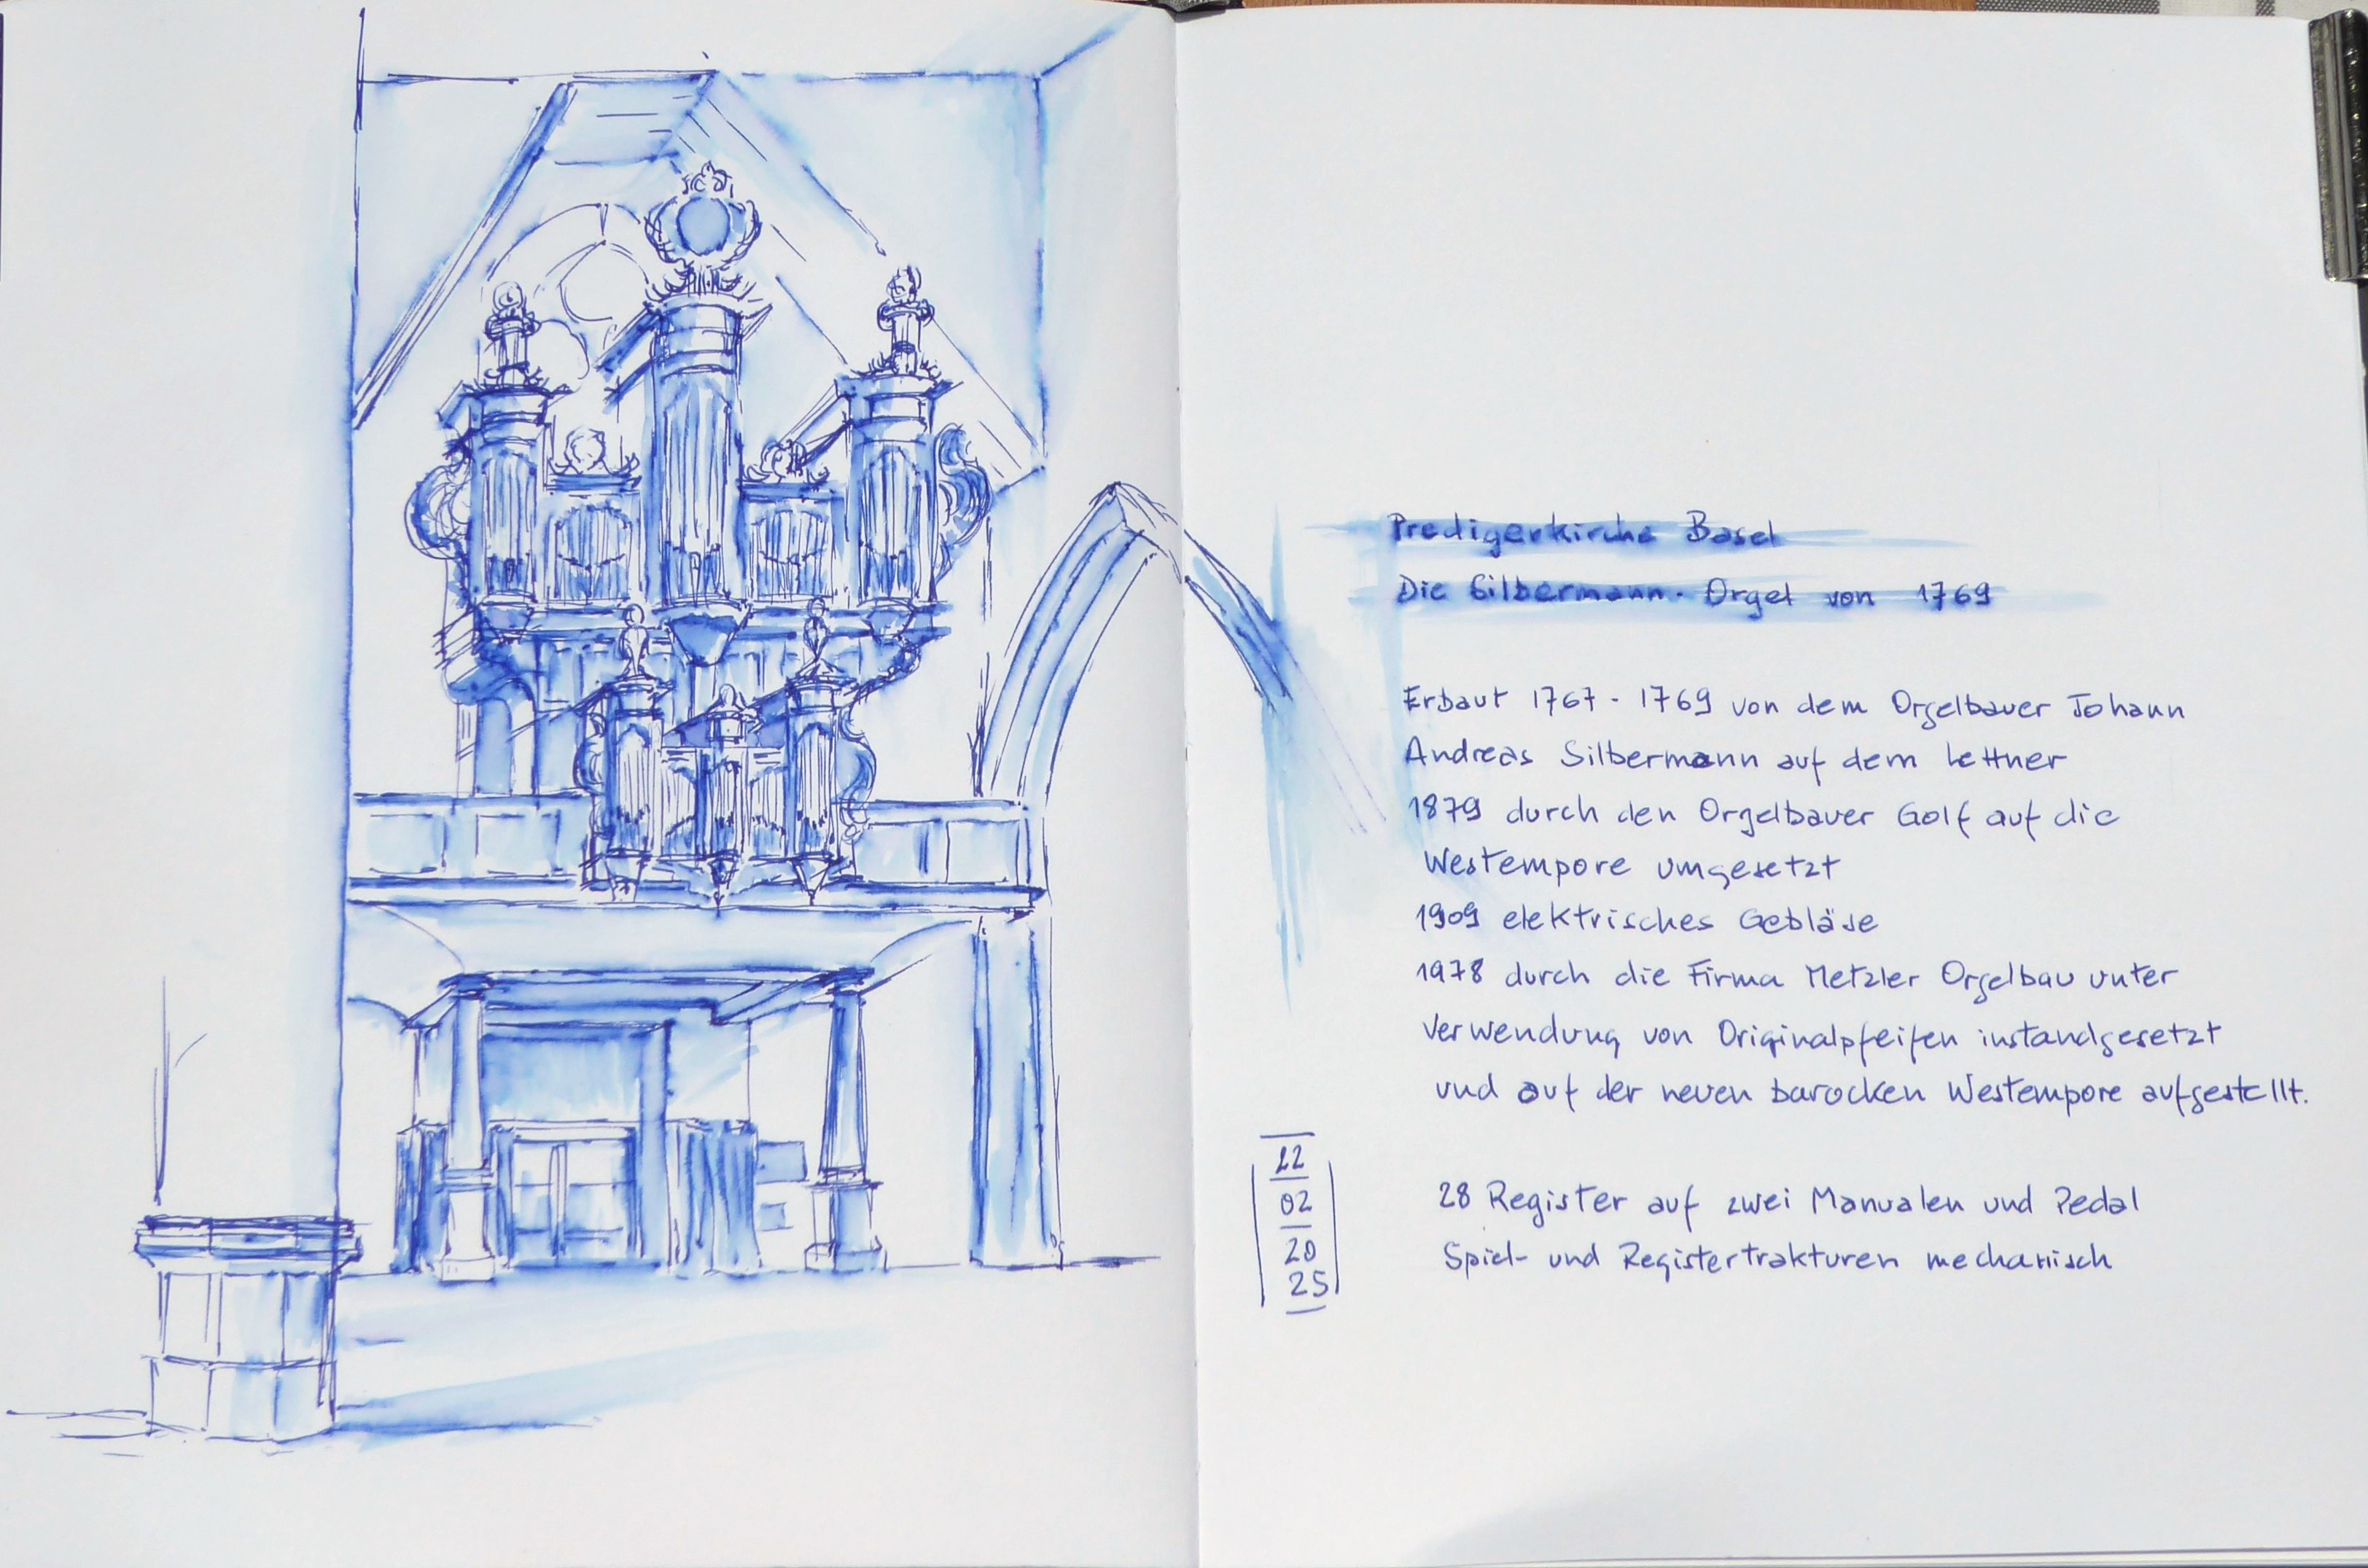 Predigerkirche Basel
Die Silbermann-Orgel von 1769
Erbaut 1767 - 1769 von dem Orgelbauer Johann
Andreas Silbermann auf dem Lettner
1879 durch den Orgelbauer Golf auf die
Westempore umgesetzt
1909 elektrisches Gebläse
1978 durch die Firma Metzler Orgelbau unter
Verwendung von Originalpfeifen instandgesetzt
und auf der neuen barocken Westempore aufgestellt.
28 Register auf zwei Manualen und Pedal
Spiel- und Registertrakturen mechanisch
22
02
20
25